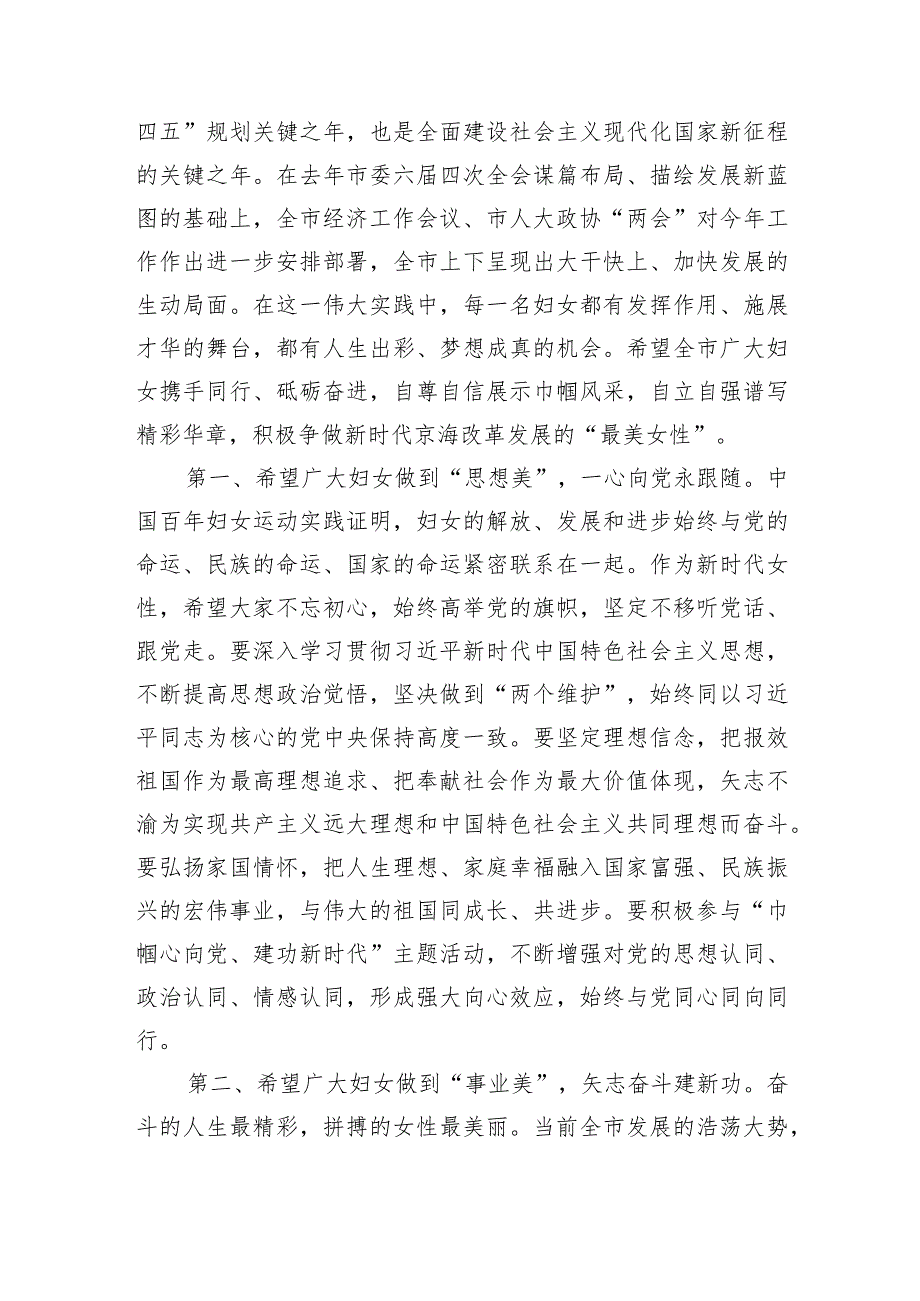 四五”规划关键之年，也是全面建设社会主义现代化国家新征程
的关键之年。在去年市委六届四次全会谋篇布局、描绘发展新蓝
图的基础上，全市经济工作会议、市人大政协“两会”对今年工
作作出进一步安排部署，全市上下呈现出大干快上、加快发展的
生动局面。在这一伟大实践中，每一名妇女都有发挥作用、施展
才华的舞台，都有人生出彩、梦想成真的机会。希望全市广大妇
女携手同行、砥砺奋进，自尊自信展示巾帼风采，自立自强谱写
精彩华章，积极争做新时代京海改革发展的“最美女性”。
第一、希望广大妇女做到“思想美”，一心向党永跟随。中
国百年妇女运动实践证明，妇女的解放、发展和进步始终与党的
命运、民族的命运、国家的命运紧密联系在一起。作为新时代女
性，希望大家不忘初心，始终高举党的旗帜，坚定不移听党话、
跟党走。要深入学习贯彻习近平新时代中国特色社会主义思想，
不断提高思想政治觉悟，坚决做到“两个维护”，始终同以习近
平同志为核心的党中央保持高度一致。要坚定理想信念，把报效
祖国作为最高理想追求、把奉献社会作为最大价值体现，矢志不
渝为实现共产主义远大理想和中国特色社会主义共同理想而奋斗。
要弘扬家国情怀，把人生理想、家庭幸福融入国家富强、民族振
兴的宏伟事业，与伟大的祖国同成长、共进步。要积极参与“巾
帼心向党、建功新时代”主题活动，不断增强对党的思想认同、
政治认同、情感认同，形成强大向心效应，始终与党同心同向同
行。
第二、希望广大妇女做到“事业美”，矢志奋斗建新功。奋
斗的人生最精彩，拼搏的女性最美丽。当前全市发展的浩荡大势，